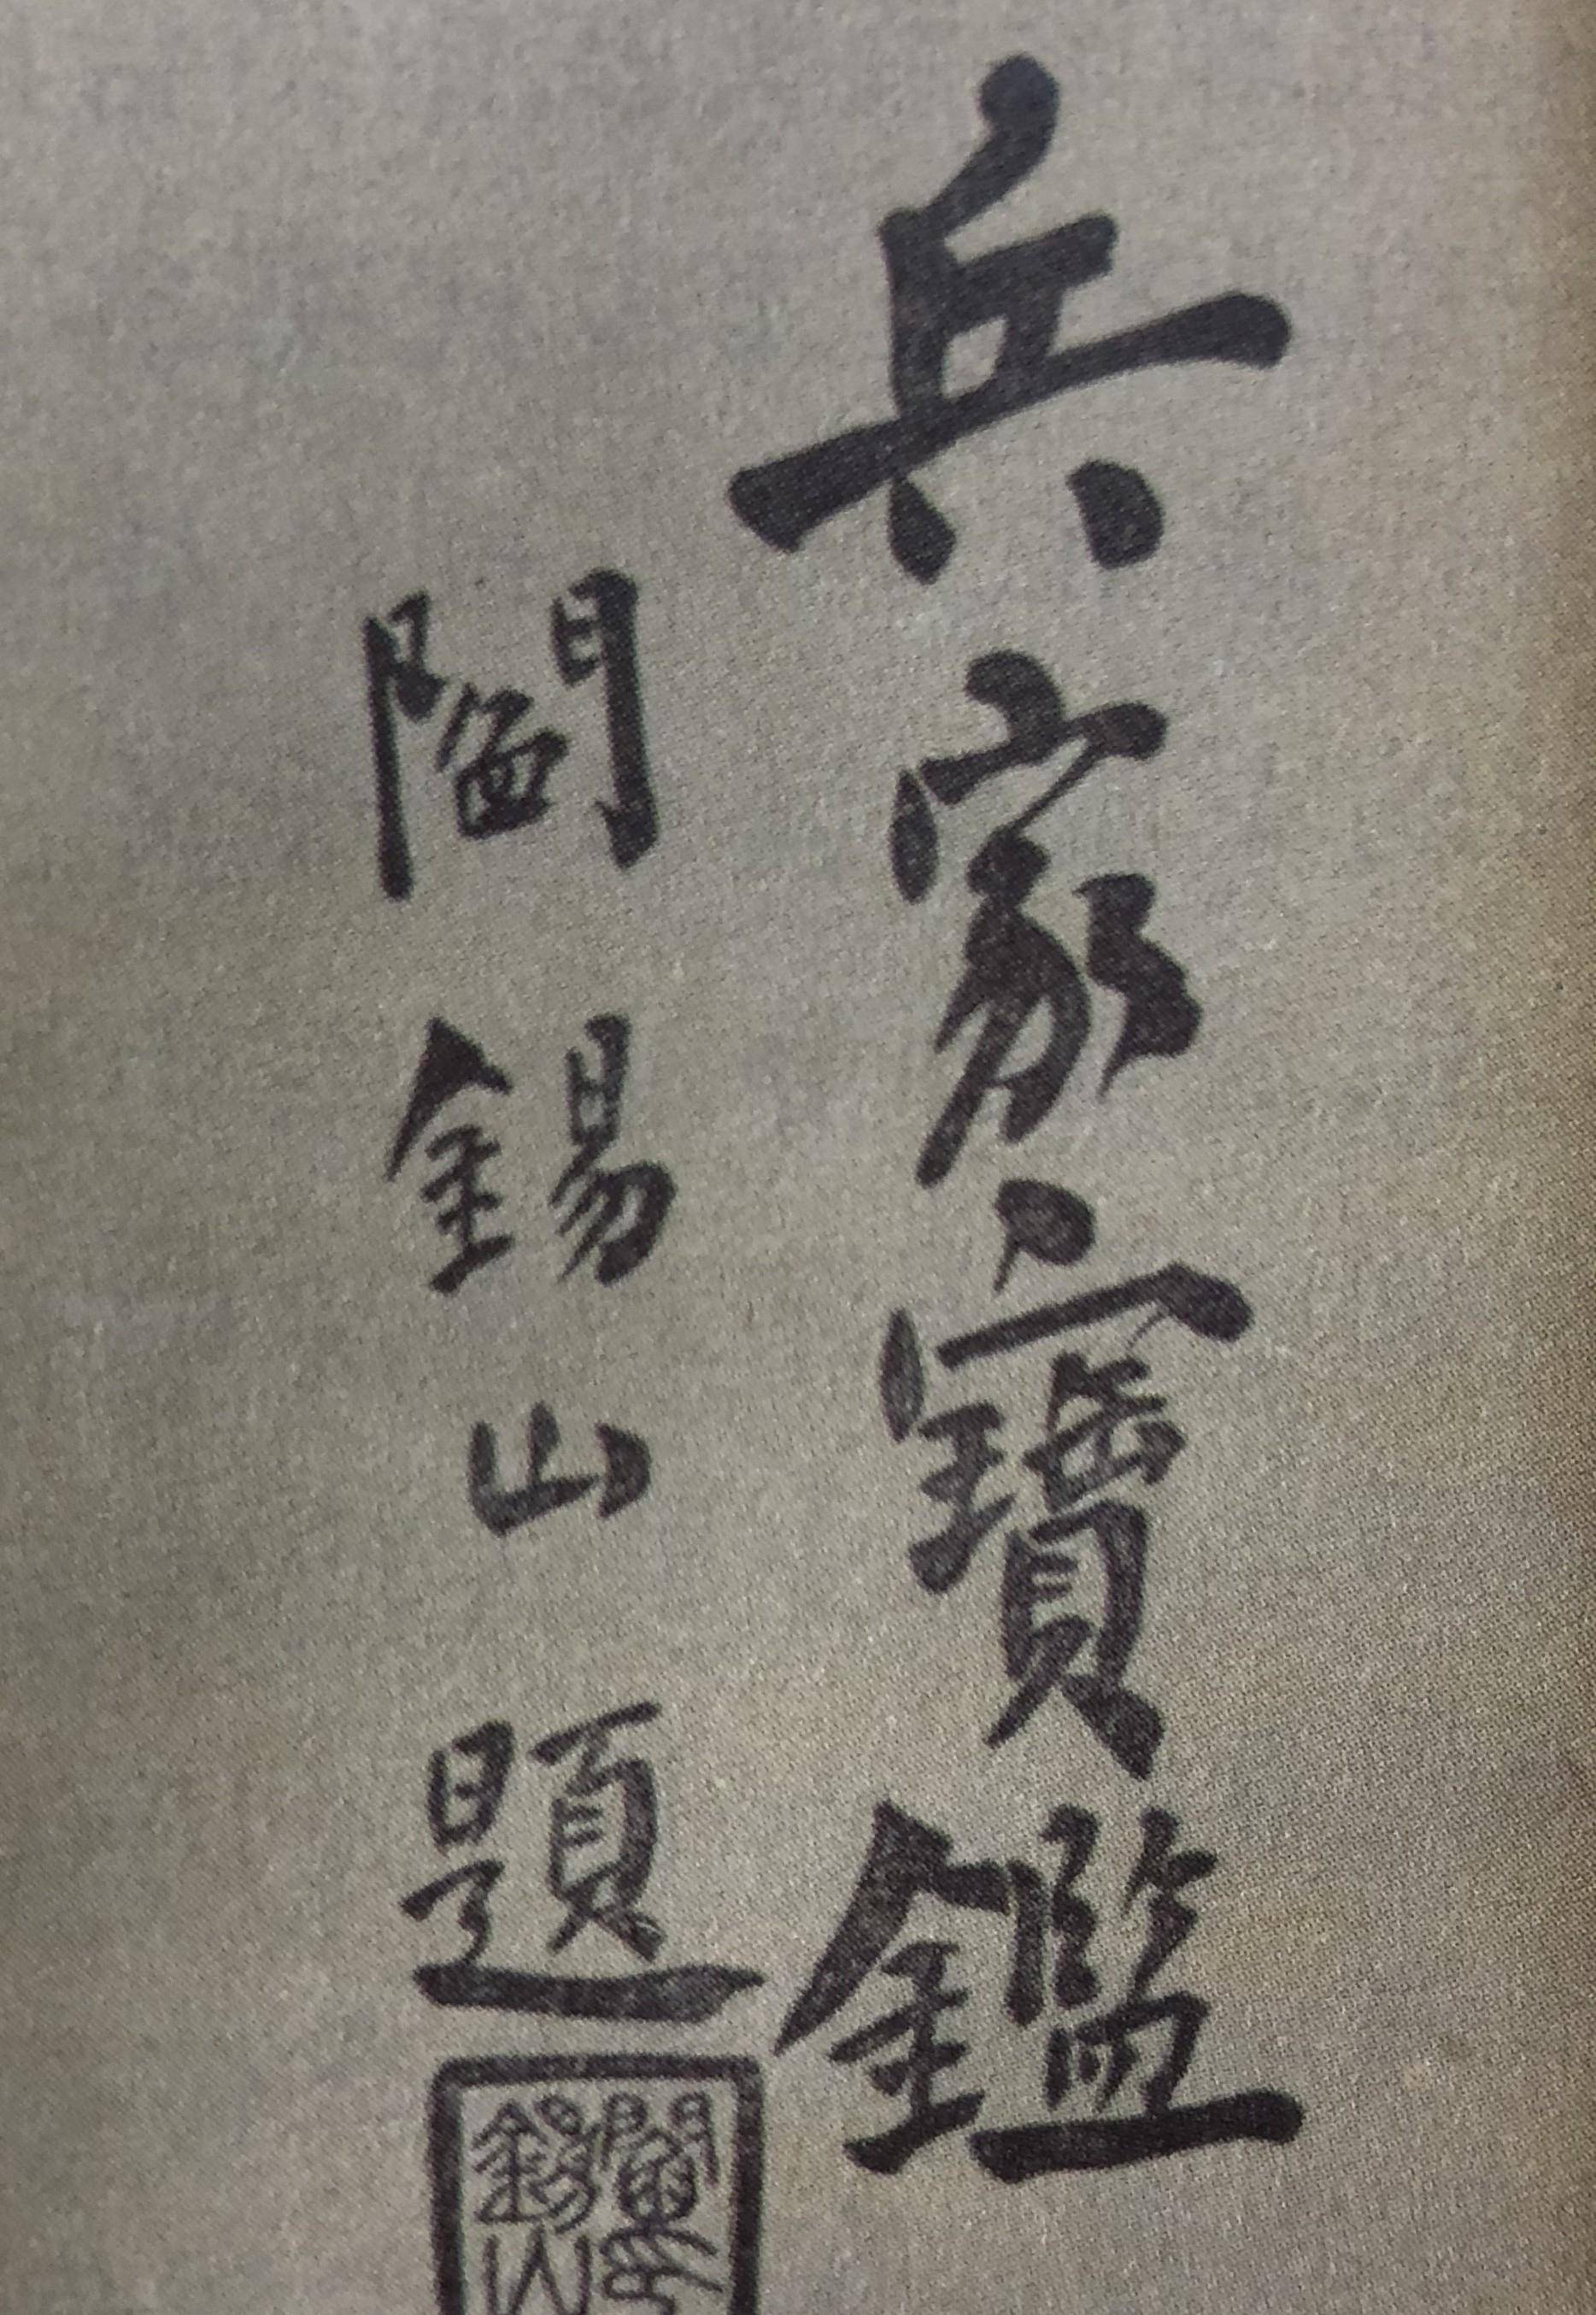 兵家寶鑑
閻錫山題
閻錫山印